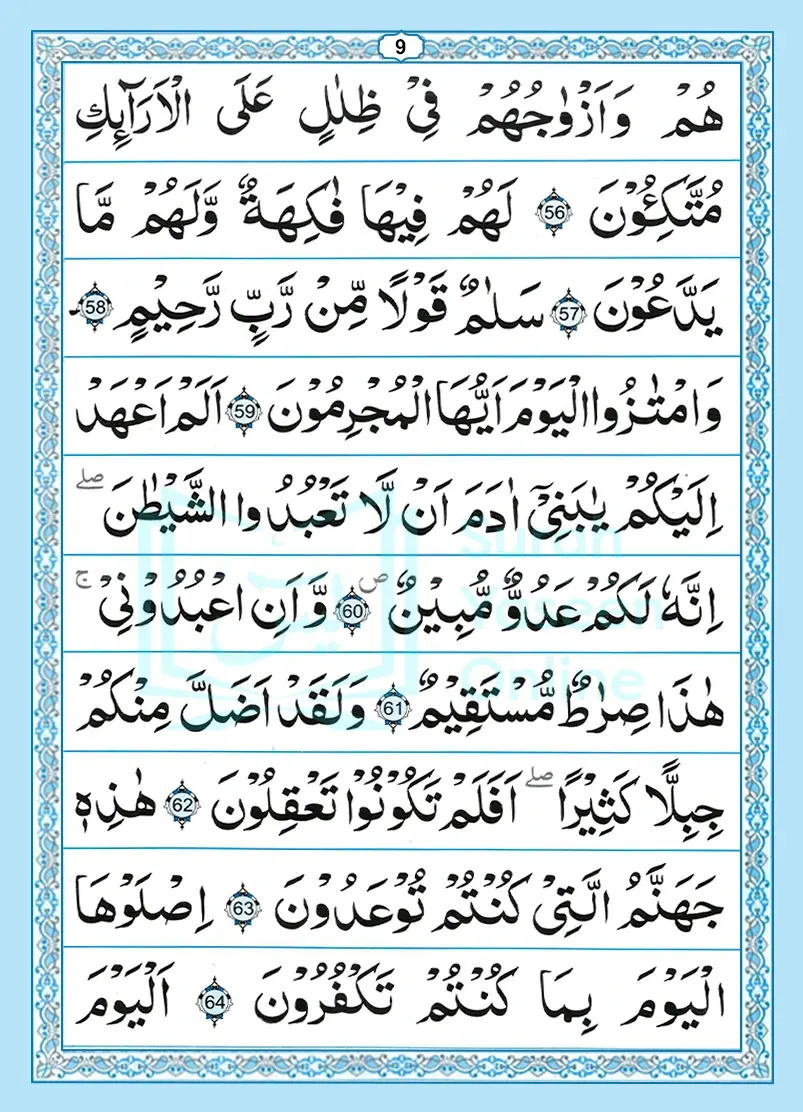 9
هُمْ وَاَزْوٰجُهُمْ فِيْ ظِلٰلٍ عَلَى الْاَرَآئِكِ
مُتَّكِـُٔوْنَ 56 لَهُمْ فِيْهَا فٰكِهَةٌ وَّلَهُمْ مَّا
يَدَّعُوْنَ 57 سَلٰمٌ قَوْلًا مِّنْ رَّبٍّ رَّحِيْمٍ 58
وَامْتٰزُوا الْيَوْمَ اَيُّهَا الْمُجْرِمُوْنَ 59 اَلَمْ اَعْهَدْ
اِلَيْكُمْ يٰبَنِيْٓ اٰدَمَ اَنْ لَّا تَعْبُدُوا الشَّيْطٰنَ ۖ
اِنَّهٗ لَكُمْ عَدُوٌّ مُّبِيْنٌ 60 ص وَّاَنِ اعْبُدُوْنِيْ ۚ
هٰذَا صِرٰطٌ مُّسْتَقِيْمٌ 61 وَلَقَدْ اَضَلَّ مِنْكُمْ
جِبِلًّا كَثِيْرًا ۖ اَفَلَمْ تَكُوْنُوْا تَعْقِلُوْنَ 62 هٰذِهٖ
جَهَنَّمُ الَّتِيْ كُنْتُمْ تُوْعَدُوْنَ 63 اِصْلَوْهَا
الْيَوْمَ بِمَا كُنْتُمْ تَكْفُرُوْنَ 64 اَلْيَوْمَ
Surah
Yaseen
Online